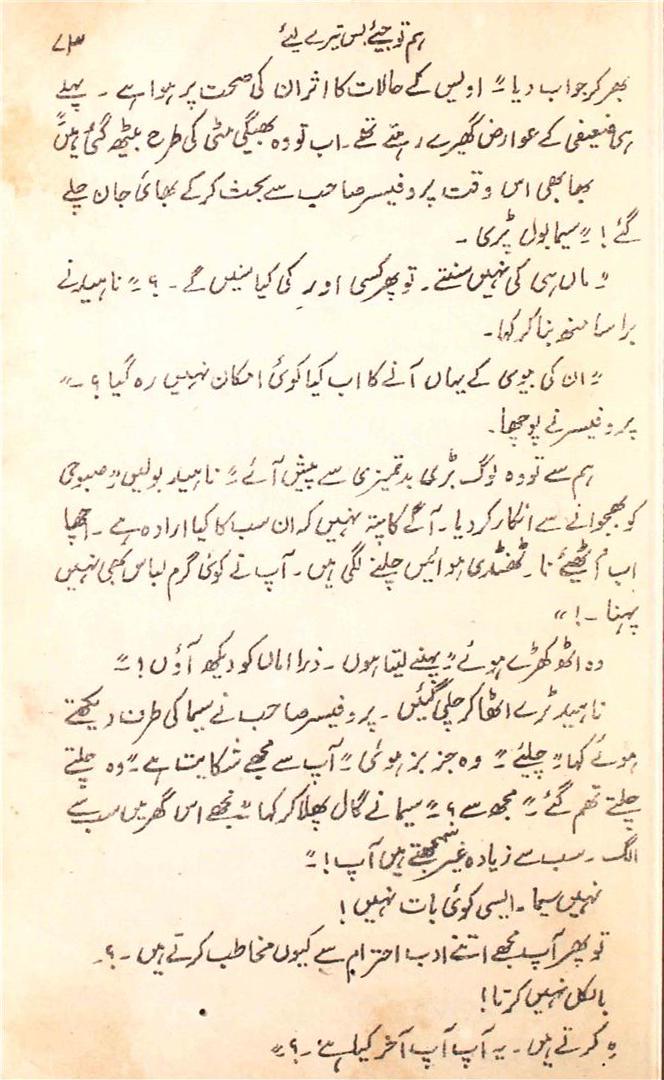 ہم تو جیئے بس تیرے لیئے
۷۳
بھر کر جواب دیا " اویس کے حالات کا اثر ان کی صحت پر ہوا ہے ۔ پہلے
ہی ضعیفی کے عوارض گھیرے رہتے تھے ۔ اب تو وہ بھیگی مٹی کی طرح بیٹھ گئی ہیں "
بھابھی اس وقت پروفیسر صاحب سے بحث کر کے بھائی جان چلے
گئے ! " سیما بول پڑی ۔
" ماں ہی کی نہیں سنتے ۔ تو پھر کسی اور کی کیا سنیں گے ۔ ؟ " ناہید نے
برا سا منھ بنا کر کہا ۔
" ان کی بیوی کے یہاں آنے کا اب کیا کوئی امکان نہیں رہ گیا ؟ ۔ "
پروفیسر نے پوچھا ۔
ہم سے تو وہ لوگ بڑی بدتمیزی سے پیش آئے " ناہید بولیں " صبوحی
کو بھجوانے سے انکار کر دیا ۔ آگے کا پتہ نہیں کہ ان سب کا کیا ارادہ ہے ۔ اچھا
اب اٹھیئے نا ۔ ٹھنڈی ہوائیں چلنے لگی ہیں ۔ آپ نے کوئی گرم لباس بھی نہیں
پہنا ۔ ! "
وہ اٹھ کھڑے ہوئے " پہنے لیتا ہوں ۔ ذرا اماں کو دیکھ آؤں ! "
ناہید ٹرے اٹھا کر چلی گئیں ۔ پروفیسر صاحب نے سیما کی طرف دیکھتے
ہوئے کہا " چلیئے " وہ جز بز ہوئی " آپ سے مجھے شکایت ہے " وہ چلتے
چلتے تھم گئے " مجھ سے ؟ " سیما نے گال پھلا کر کہا " مجھے اس گھر میں سب سے
الگ ۔ سب سے زیادہ غیر سمجھتے ہیں آپ ! "
نہیں سیما ۔ ایسی کوئی بات نہیں !
تو پھر آپ مجھے اتنے ادب احترام سے کیوں مخاطب کرتے ہیں ۔ ؟ ۔
بالکل نہیں کرتا !
کرتے ہیں ۔ یہ آپ آپ آخر کیا ہے ۔ ؟ "